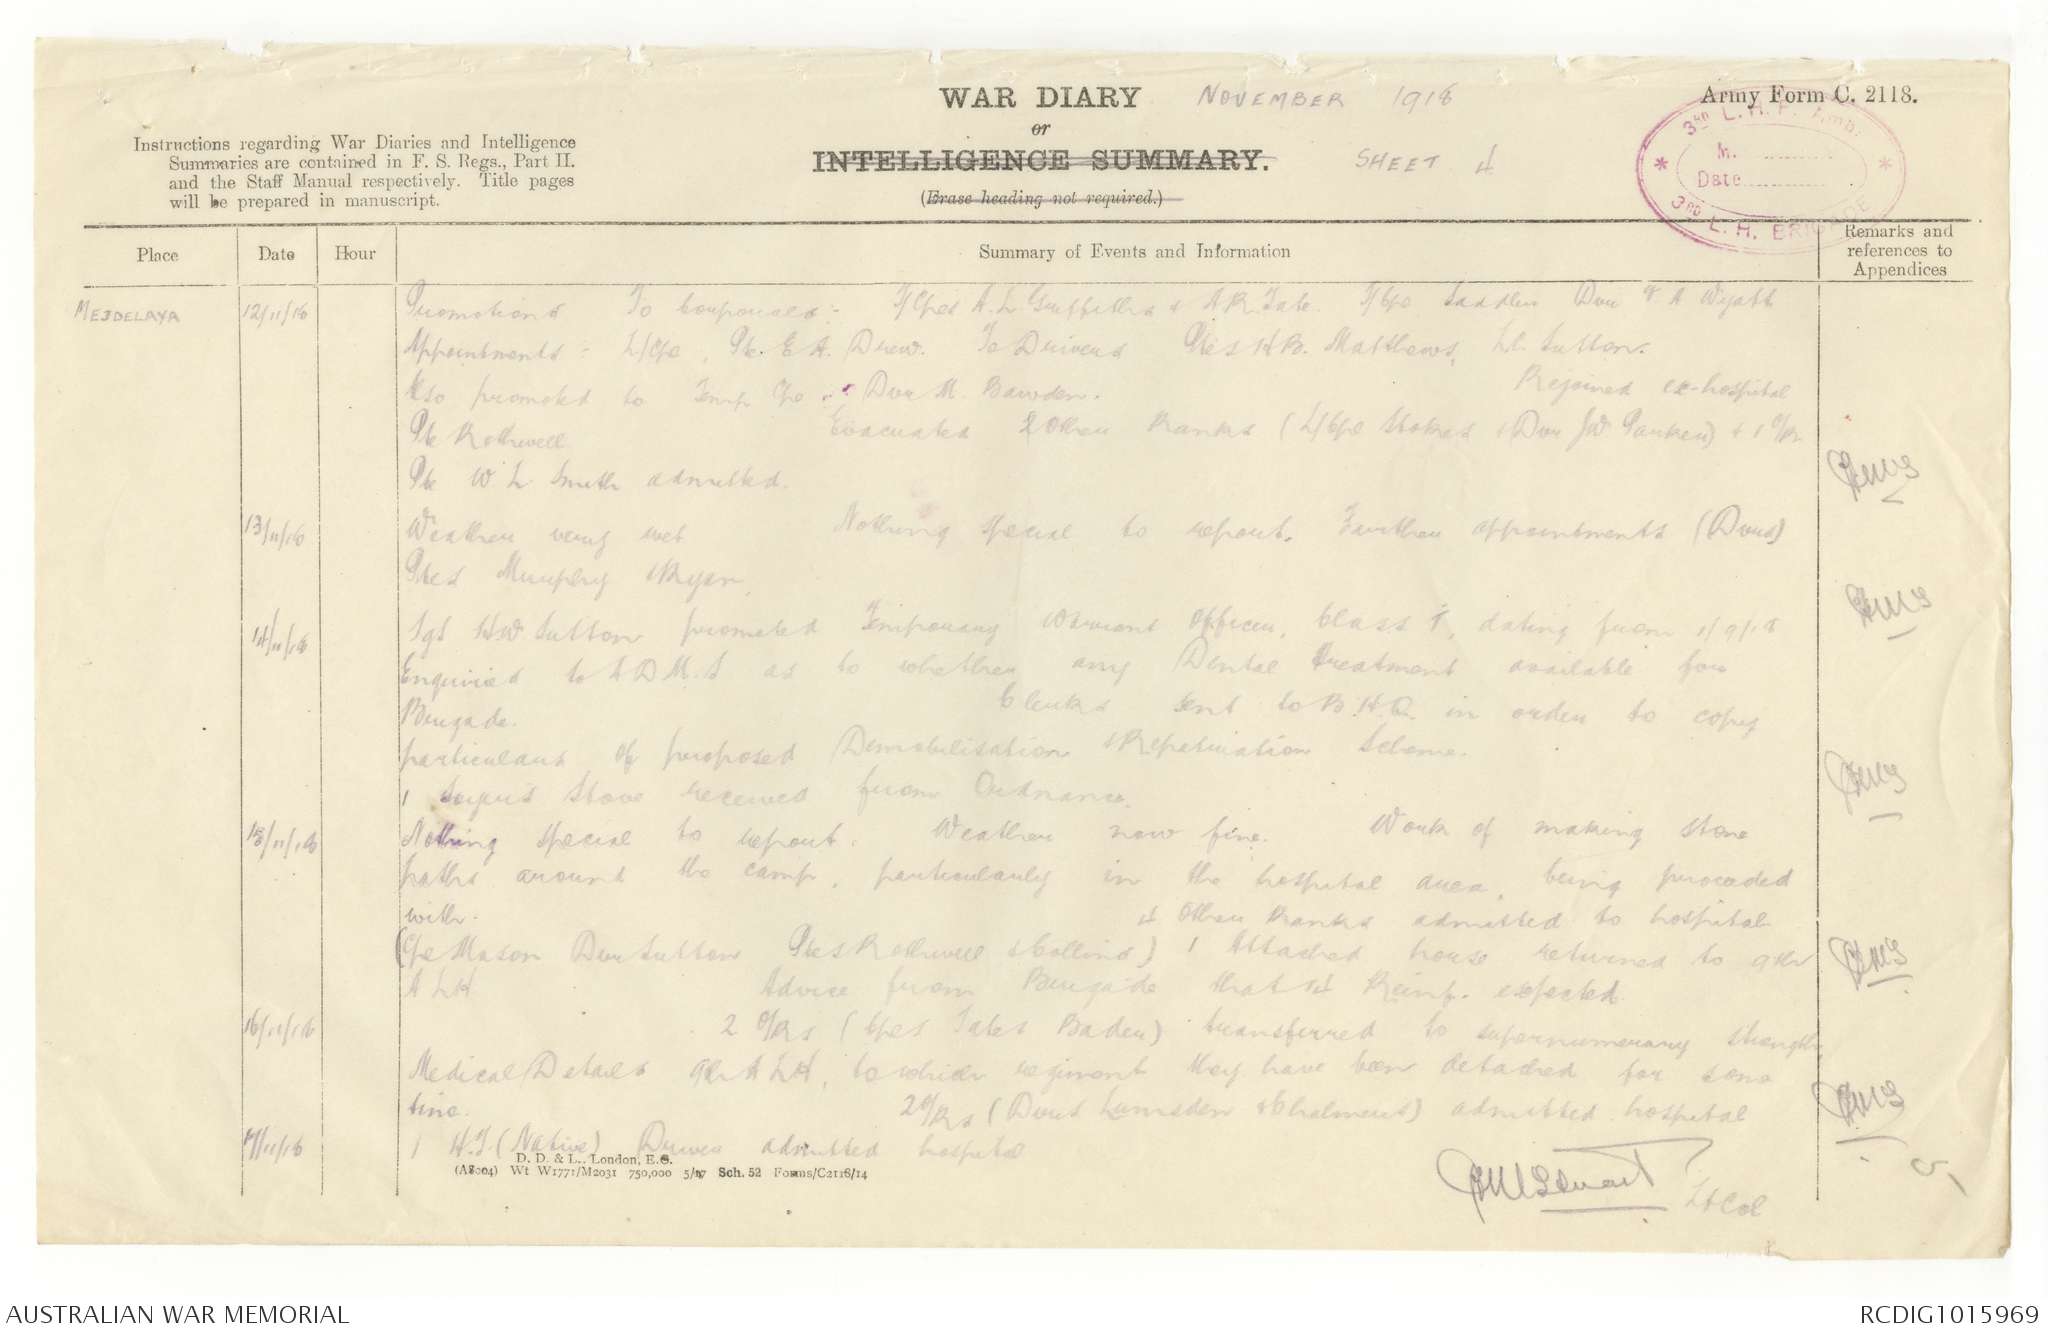 WAR DIARY NOVEMBER 1918
Army Form C. 2118.
or
INTELLIGENCE SUMMARY. SHEET 4
(Erase heading not required.)
Instructions regarding War Diaries and Intelligence
Summaries are contained in F. S. Regs., Part II.
and the Staff Manual respectively. Title pages
will be prepared in manuscript.
3RD L. H. F. Amb.
M.
Date
3RD L. H. BRIGADE
Place Date Hour Summary of Events and Information Remarks and
references to
Appendices
MEJDELAYA 12/11/18 Promotions To Corporals:- T/Cpls A.L Griffiths & A.R. Tate. T/Cpl Saddler Dvr F A Wyatt
Appointments:- L/Cpl, Pte. E A. Drew. To Drivers Ptes H B. Matthews, L.C. Sutton.
Also promoted to Temp Cpl:- Dvr M. Bawden. Rejoined ex-hospital
Pte Rothwell Evacuated 2 Other Ranks (L/Cpl Stokes & Dvr J W Parker) & 1 O/R
Pte W L Smith admitted.
13/11/18 Weather very wet Nothing special to report. Further appointments (Dvrs)
Ptes Murphy & Ryan.
14/11/18 Sgt H.W. Sutton promoted Temporary Warrant Officer, Class 1, dating from 1/9/18
Enquiries to A D M. S as to whether any Dental treatment available for
Brigade. Clerks sent to B. H. Q. in order to copy
particulars of proposed Demobilisation & Repatriation Scheme.
1 Soyers Stove received from Ordnance.
15/11/18 Nothing special to report. Weather now fine. Work of making stone
paths around the camp, particularly in the hospital area, being proceeded
with. 4 Other Ranks admitted to hospital
(Cpl Mason Dvr Sutton Ptes Rothwell & Collins) 1 Attached horse returned to 9th
A L H Advice from Brigade that 14 Reinf. expected.
16/11/18 2 O/Rs (Cpls Tates Bader) transferred to supernumerary strength,
Medical Details 9th A L H, to which regiment they have been detached for some
time. 2 O/Rs (Dvrs Lumsden & Chalmers) admitted hospital
17/11/18 1 H.T (Native) Driver admitted hospital
D. D. & L., London, E.C.
(A8004) Wt W1771/M2031 750,000 5/17 Sch. 52 Forms/C2118/14
Lt Col
AUSTRALIAN WAR MEMORIAL
RCDIG1015969